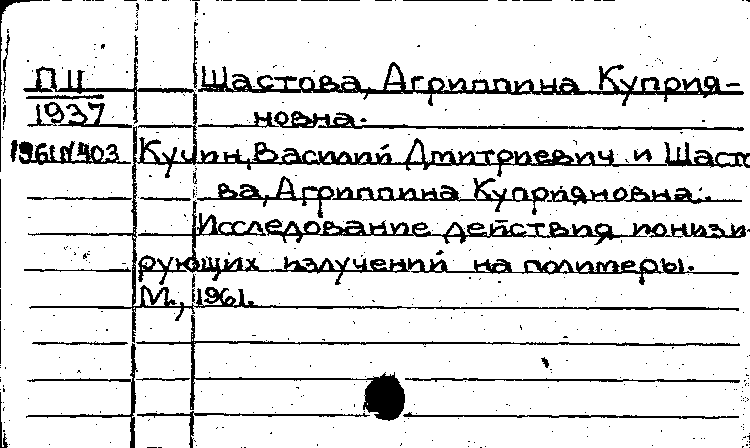 П II Шастова, Агриппина Куприя-
1937 новна.
1961 N 403 Кучин, Василий Дмитриевич и Шасто
ва, Агриппина Куприяновна.
Исследование действия ионизи-
рующих излучений на полимеры.
М., 1961.